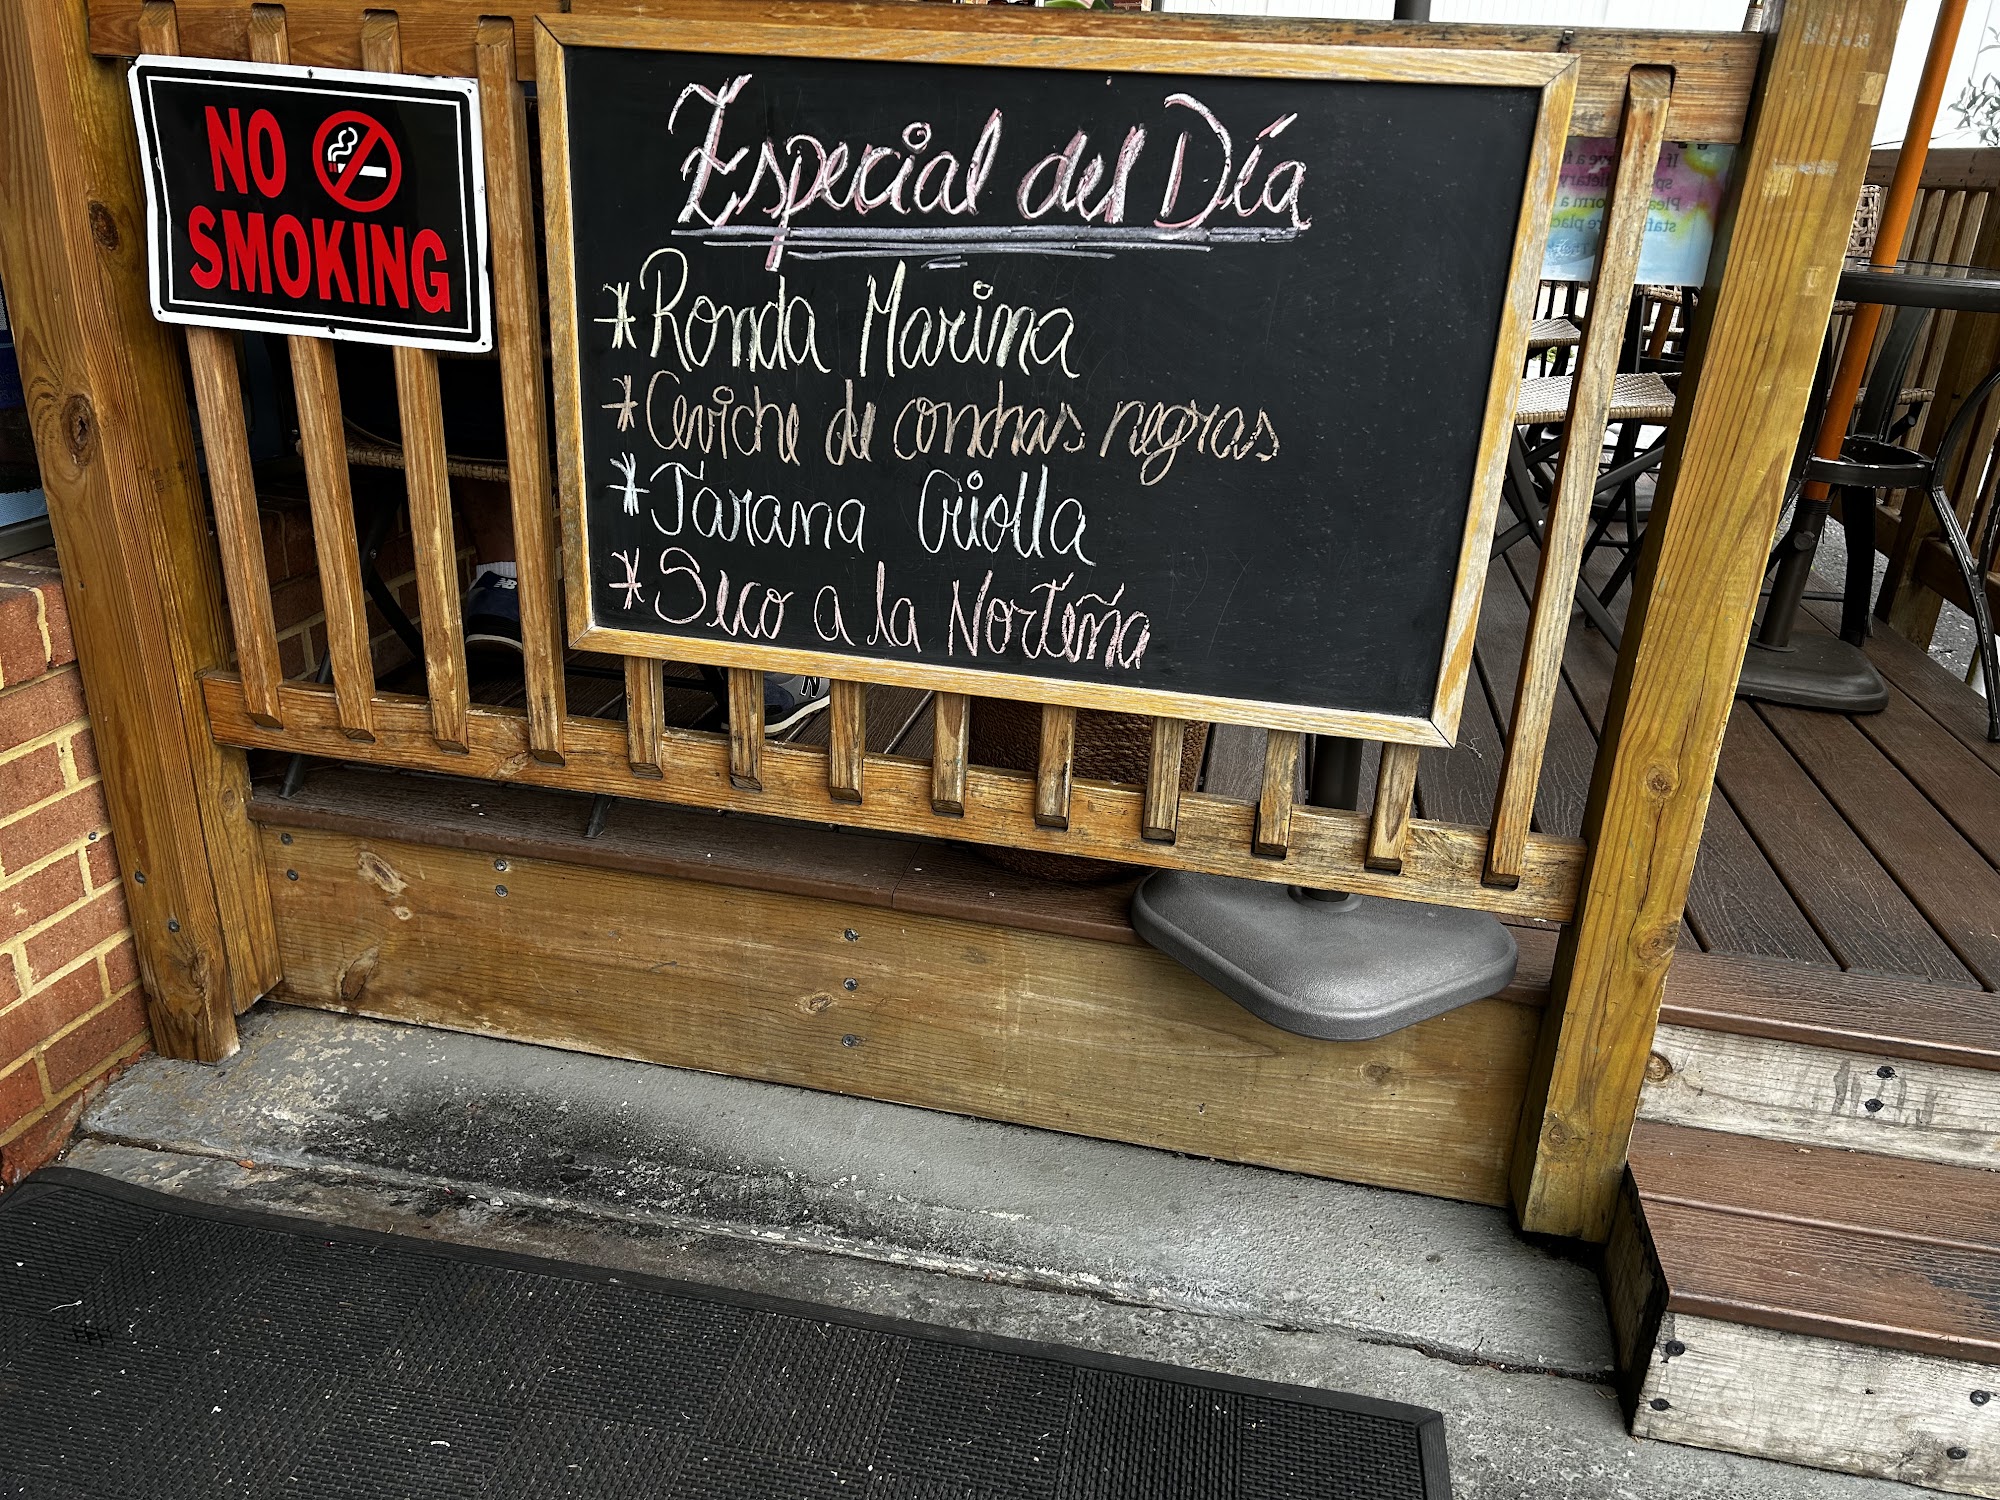 NO
SMOKING
Especial del Día
* Ronda Marina
* Ceviche de conchas negras
* Jarana Criolla
* Seco a la Norteña